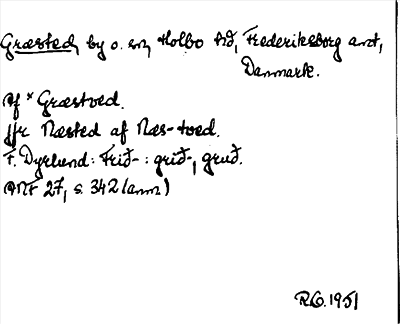 Græsted, by o. sn, Holbo hd, Frederiksborg amt,
Danmark.
Af * Græstved.
Jfr Næsted af Næs-tved.
F. Dyrlund: Frið- : grið-, gruð.
ANF 27, s. 342 (anm)
RO. 1951